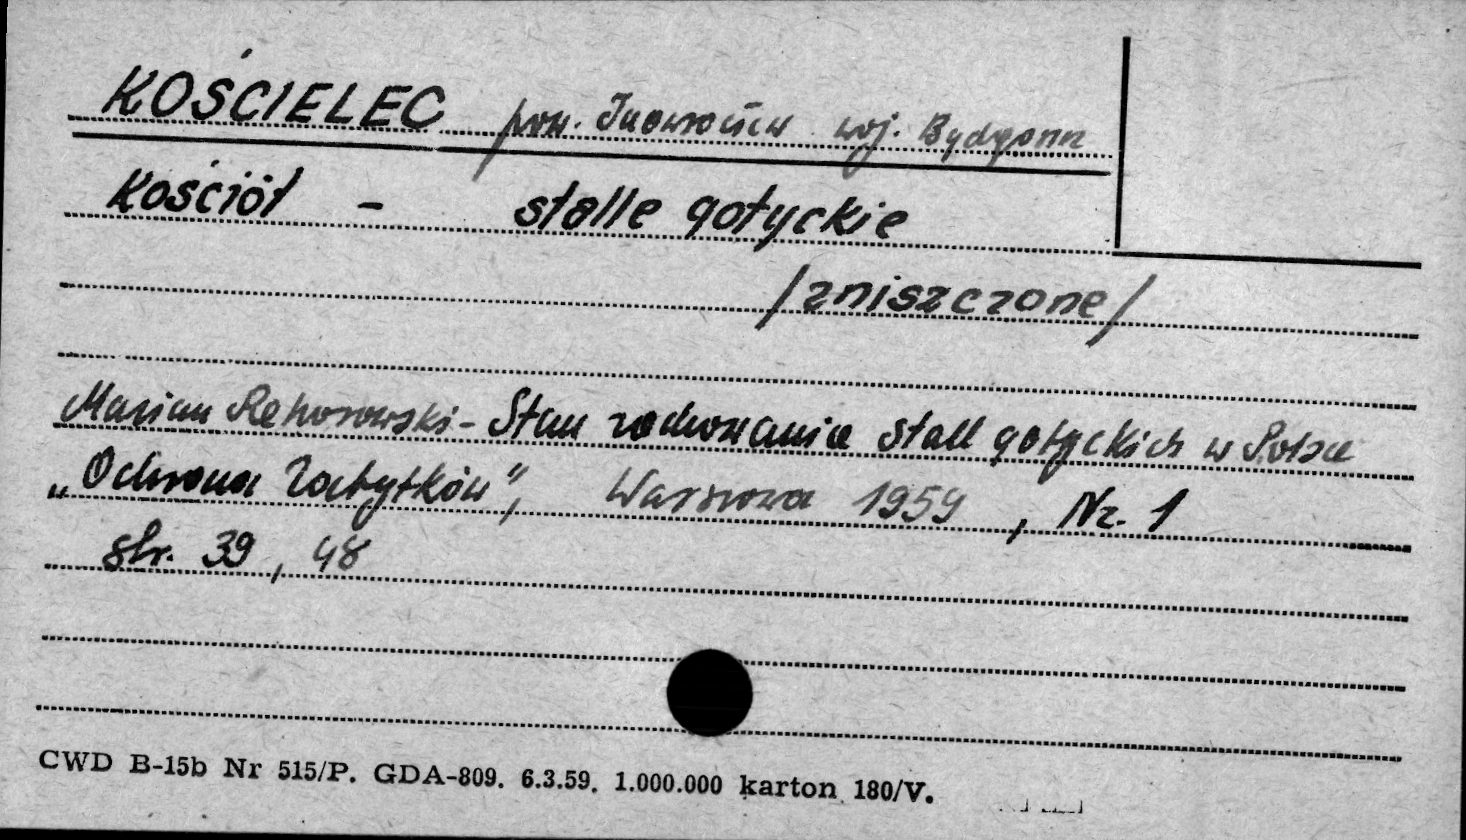 KOŚCIELEC pow. Inowrocław woj. Bydgoszcz
Kościół - stalle gotyckie
/zniszczone/
Marian Rehorowski - Stan zachowania stall gotyckich w Polsce
„Ochrona Zabytków", Warszawa 1959, Nr. 1
str. 39, 48
CWD B-15b Nr 515/P. GDA-809. 6.3.59. 1.000.000 karton 180/V.